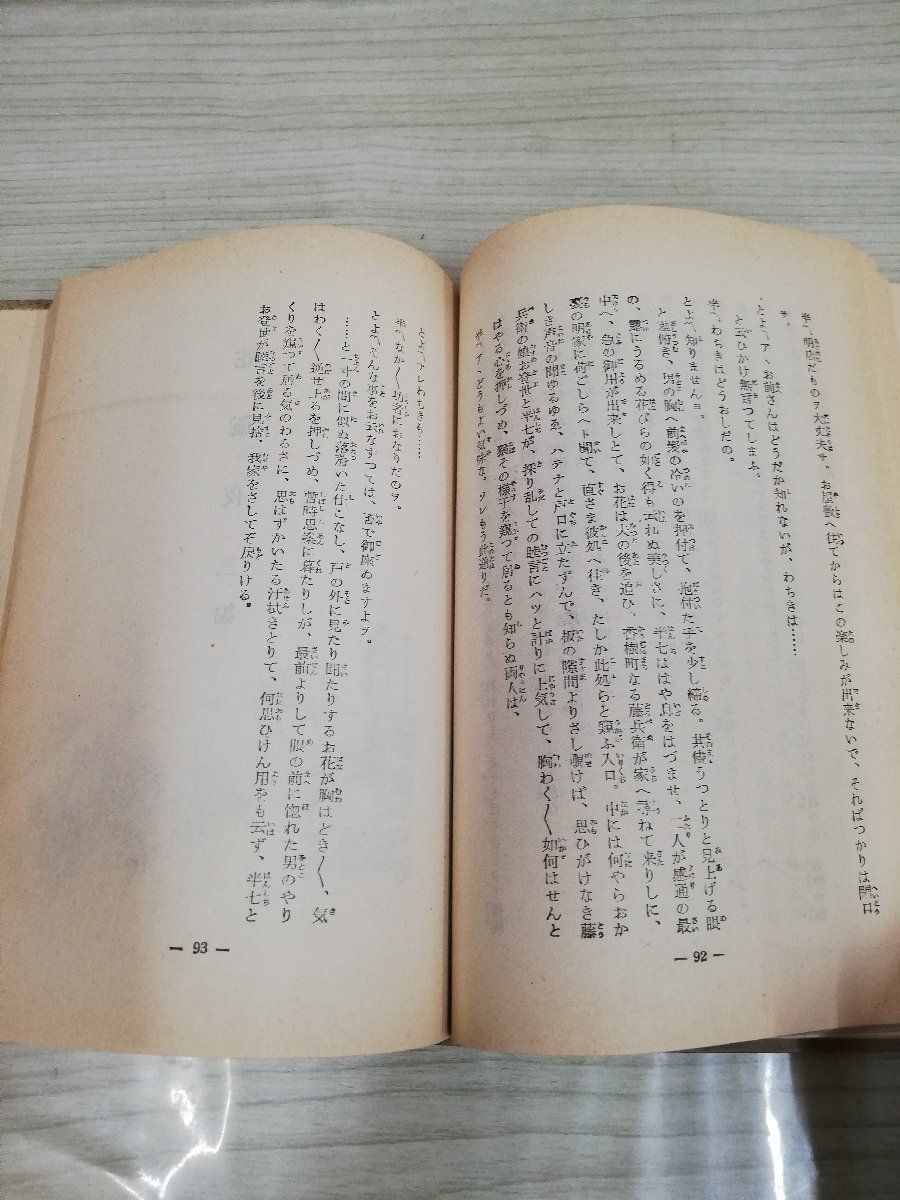 半「明店だものヲ大丈夫サ。お屋敷へ往てからはこの楽しみが出来ないで、そればつかりは閉口
サ。
とよ「アヽお前さんはどうだか知れないが、わちきは……
と云ひかけ無言つてしまふ。
半「わちきはどうおしだの。
とよ「知りませんヨ。
と差俯き、男の胸へ前髪の冷いのを押付て、抱付た手を少し締る。其儘うつとりと見上げる眼
の、露にうるめる花びらの如く得も云れぬ美しさに、半七ははや息をはづませ、二人が感通の最
中へ、急の御用が出来しとて、お花は人の後を追ひ、香樹町なる藤兵衛が家へ尋ねて来りしに、
裏の明家に荷ごしらへト聞て、直さま彼処へ往き、たしか此処らと窺ふ入口。中には何やらおか
しき声音の聞ゆるゆゑ、ハテナと戸口に立たずんで、板の隙間よりさし覗けば、思ひがけなき藤
兵衛の娘お登世と半七が、採り乱しての睦言にハツと計りに上気して、胸わく〳〵如何はせんと
はやる心を押しづめ、猶その様子を窺つて居るとも知らぬ両人は、
半「アヽどうもよい気味だ。ソレもう此通りだ。
— 92 —
とよ「アレわちきも……
半「なか〳〵功者におなりだのヲ。
とよ「そんな事をお云なすつては、否で御座ゐますよヲ。
……と一寸の間に似ぬ落済いた仕こなし、戸の外に見たり聞たりするお花が胸はどき〳〵、気
はわく〳〵逆せ上るを押しづめ、暫時思案に暮たりしが、最前よりして眼の前に惚れた男のやり
くりを覗つて居る気のわるさに、思はずかいたる汗拭きとりて、何思ひけん用をも云ず、半七と
お登世が睦言を後に見捨、我家をさしてぞ戻りける。
— 93 —